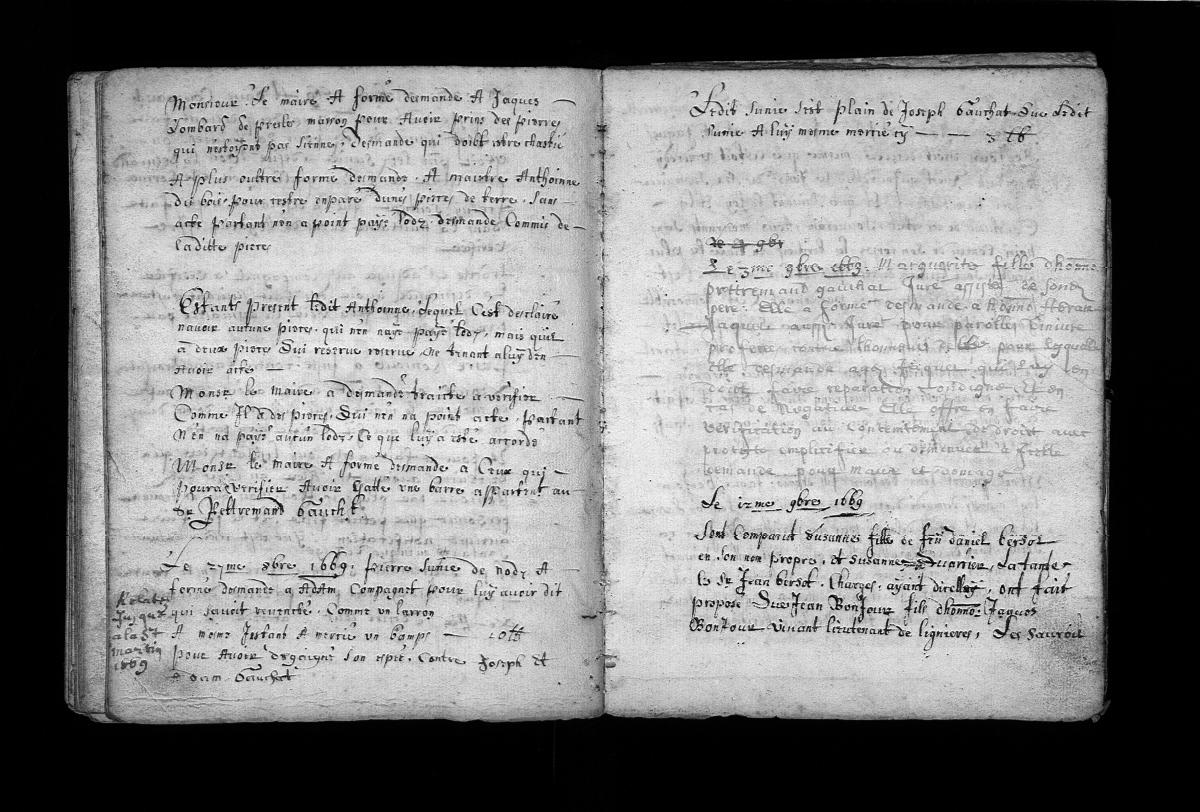 Monsieur Le maire A formé demande A Jaques
Lombard de presles marron pour Avoir prins des pierres
qui nestoyent pas Sienne, Demande qui doibt estre chastié
A plus oultre formé demande A maistre Anthoinne
du bois pour estre enparé dunes pieces de terre Sans
acte partant nen a point payé lodz, demande Commis de
laditte piece
Estants present ledit Anthoinne, Lequel Cest desclairé
navoir autune piece qui nen naye payé lodz, mais quil
a deux piece Qui reserve ne tenant a luy den
Avoir acte
Monsr le maire a demandé traicte a verifier
Comme Il A des pieces, Qui nen na point acte, Partant
Nen na payé autun lodz Ce que luy a esté accordé
Monsr le maire A formé demande a Ceux qui
pourat verifier Avoir une barre appartent au
Sr Pettremand Gauchat
Le 27me 8bre 1669, Pierre Sunie de nodz A
formé demande a Adam Compagnet pour luy avoir dit
qui savoit revenché, Comme un larron
A mesme Instant A mercié un bamps — 10 lb
pour Avoir desgaigné Son espée, Contre Joseph et
Adam Gauchat
Relaté
Jusque
a la St
martin
1669
Ledit Sunie Sest plain de Joseph Gauchat Que Ledit
Sunie A luy mesme mercié cy — — 3 lb
Le 4 9br
Le 3me 9bre 1669, Marguerite fille dhonno
pettremand gauchat Juré assistée de Sondt
pere, Elle a formé demande a Adam Abram
Jaques aussi Juré pour parolles Diniure
proferé contre lhonneur delle pour lesquelle
elle demande audt Jaques qui luy en
doibt faire reparation condigne, et en
cas de Negative, Elle offre en faire
verification au Contentement de droit avec
proteste emplicifier ou diminuer a Icelle
demande pour maux et
Le 12me 9bre 1669
Sont Comparut Susanne fille de feu Daniel berSot
en Son nom propre, et Susanne Quarrier, La fame
le Sr Jean berSot, Chargée, ayant dicelluy, ont fait
proposé Que Jean BonJour fils dhonno: Jaques
BonJour vivant lieutenant de lignieres, Les Sauroit